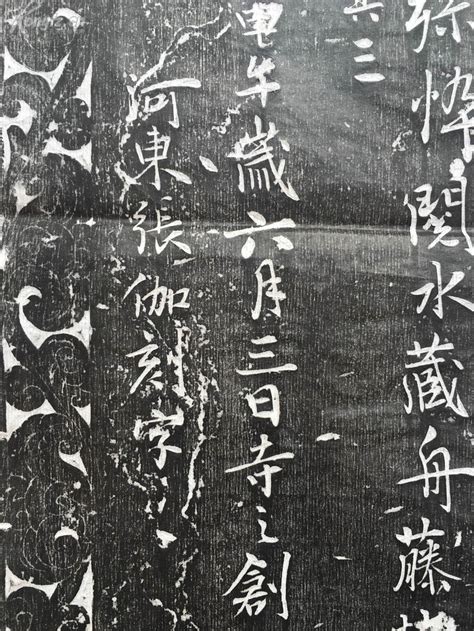 弥忰閱水藏舟藤
其二
午歲六月三日寺之創
河東張伽刻字